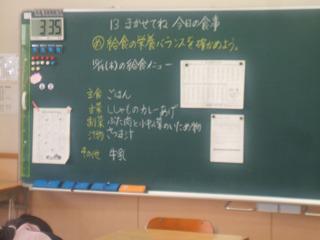 3:35
13 まかせてね 今日の食事
め 給食の栄養バランスを確かめよう。
10/14(木)の給食メニュー
主食 ごはん
主菜 ししゃものカレーあげ
副菜 ぶた肉と小松菜のいため物
汁物 さつま汁
その他 牛乳